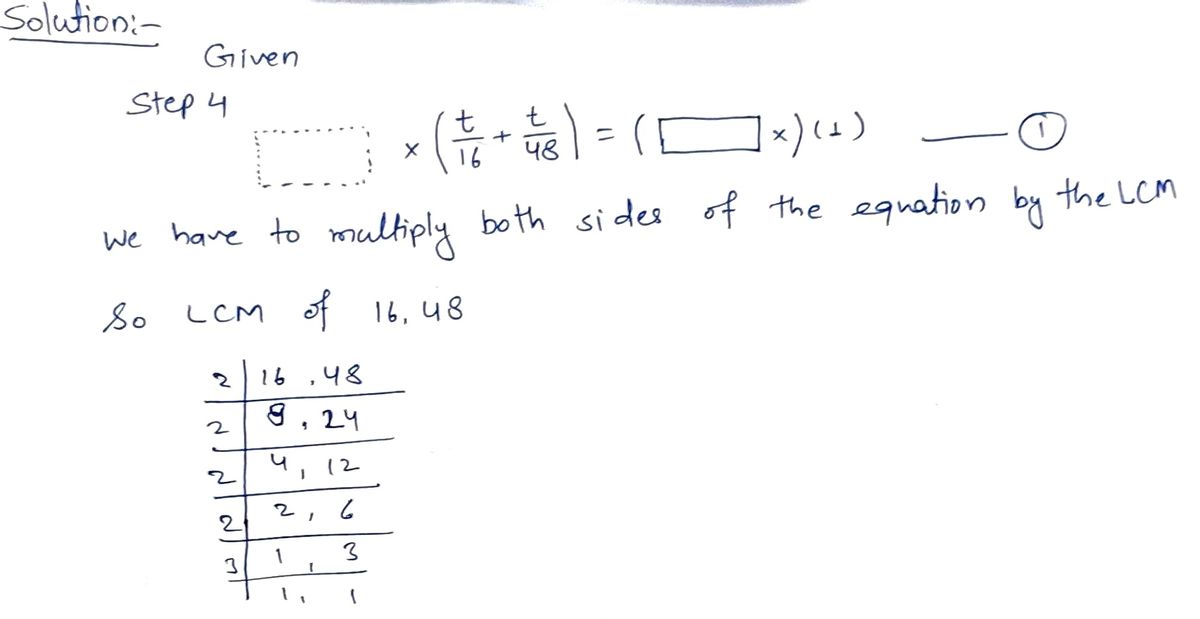 Solution:-
Given
Step 4
× (t/16 + t/48) = ( ×) (1) —— ①
We have to multiply both sides of the equation by the LCM
So LCM of 16, 48
2 | 16 , 48
2 | 8 , 24
2 | 4 , 12
2 | 2 , 6
3 | 1 , 3
1 , 1